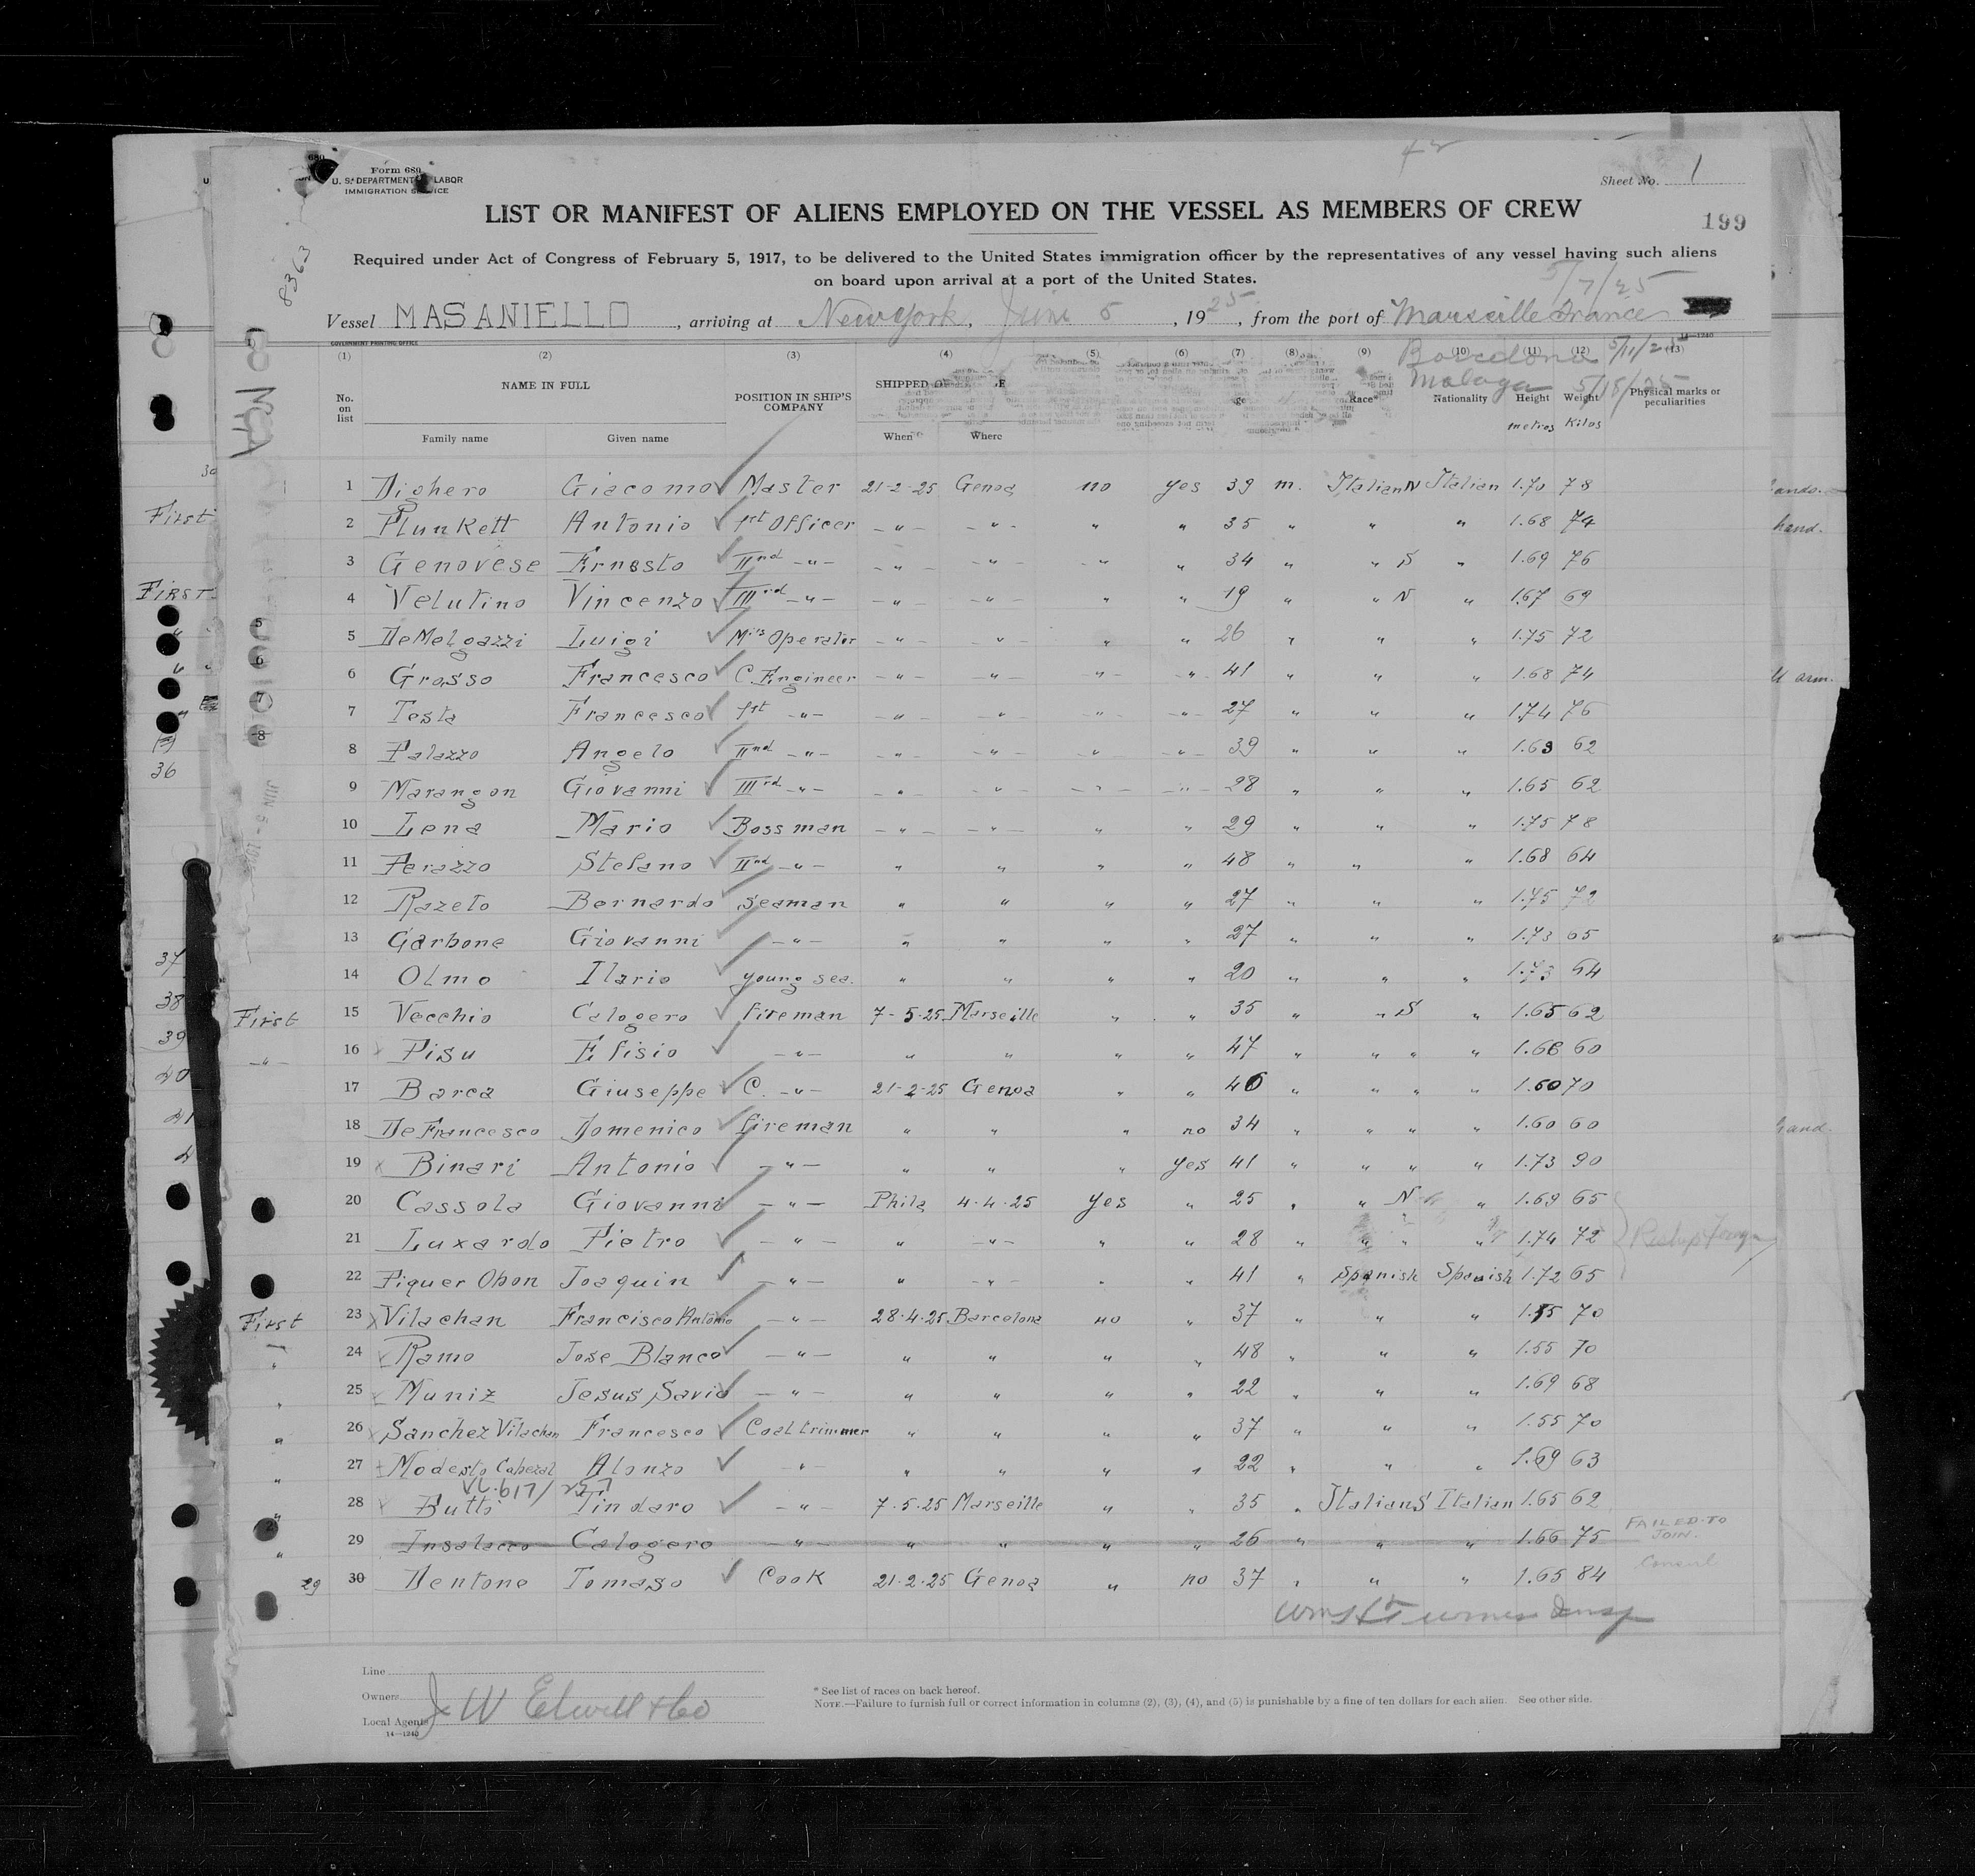 Form 680
U. S. DEPARTMENT LABOR
IMMIGRATION SERVICE
Sheet No. 1
LIST OR MANIFEST OF ALIENS EMPLOYED ON THE VESSEL AS MEMBERS OF CREW
199
8363
Required under Act of Congress of February 5, 1917, to be delivered to the United States immigration officer by the representatives of any vessel having such aliens
on board upon arrival at a port of the United States.
5/7/25
Vessel MASANIELLO, arriving at New York, June 5, 1925, from the port of Marseille France
GOVERNMENT PRINTING OFFICE 14—1240
Barcelona 5/11/25
Malaga 5/18/25
(1) (2) (3) (4) (5) (6) (7) (8) (9) (10) (11) (12) (13)
No. on list NAME IN FULL POSITION IN SHIP'S COMPANY SHIPPED Race* Nationality Height Weight Physical marks or peculiarities
Family name Given name When Where metres Kilos
1 Dighero Giacomo Master 21-2-25 Genoa no yes 39 m. Italian N Italian 1.70 78
2 Plunkett Antonio 1st Officer -"- -"- " " 35 " " " 1.68 74
3 Genovese Ernesto IInd -"- -"- -"- " " 34 " " S " 1.69 76
4 Velutino Vincenzo IIIrd -"- -"- -"- " " 19 " " N " 1.67 69
5 DeMelgazzi Luigi Mrs Operator -"- -"- " " 26 " " " 1.75 72
6 Grosso Francesco C. Engineer -"- -"- -"- -"- 41 " " " 1.68 74
7 Testa Francesco 1st -"- -"- -"- " -"- 27 " " " 1.74 76
8 Palazzo Angelo IInd -"- -"- -"- -"- -"- 39 " " " 1.63 62
9 Marangon Giovanni IIIrd -"- -"- -"- -"- -"- 28 " " " 1.65 62
10 Lena Mario Bossman -"- -"- " " 29 " " " 1.75 78
11 Perazzo Stefano IInd -"- " " " " 48 " " " 1.68 64
12 Razeto Bernardo seaman " " " " 27 " " " 1.75 72
13 Garbone Giovanni -"- " " " " 27 " " " 1.73 65
14 Olmo Ilario young sea. " " " " 20 " " " 1.73 64
First 15 Vecchio Calogero fireman 7-5-25 Marseille " " 35 " " S " 1.65 62
-"- 16 Pisu Efisio -"- " " " " 47 " " " " 1.66 60
17 Barca Giuseppe C. -"- 21-2-25 Genoa " " 46 " " " " 1.60 70
18 DeFrancesco Domenico fireman " " " no 34 " " " " 1.60 60
19 Binari Antonio -"- " " " yes 41 " " " " 1.73 90
20 Cassola Giovanni -"- Phila 4-4-25 yes " 25 " " N " 1.69 65
21 Luxardo Pietro -"- " -"- " " 28 " " " " 1.74 72
22 Piquer Obon Joaquin -"- " -"- " " 41 " Spanish Spanish 1.72 65
First 23 Vilachan Francisco Antonio -"- 28-4-25 Barcelona no " 37 " " " 1.55 70
" 24 Ramo Jose Blanco -"- " " " " 48 " " " 1.55 70
" 25 Muniz Jesus Savid -"- " " " " 22 " " " 1.69 68
" 26 Sanchez Vilachan Francesco Coal trimmer " " " " 37 " " " 1.55 70
" 27 Modesto Cabezal Alonzo -"- " " " " 22 " " " 1.69 63
" 28 Butti Tindaro -"- 7-5-25 Marseille " " 35 " Italian S Italian 1.65 62
" 29 Insalacco Calogero -"- " " " " 26 " " " 1.66 75 FAILED TO JOIN.
Consul
29 30 Dentone Tomaso Cook 21-2-25 Genoa " no 37 " " " 1.65 84
Line
Owners
Local Agents J W Elwell & Co
14—1240
* See list of races on back hereof.
NOTE.—Failure to furnish full or correct information in columns (2), (3), (4), and (5) is punishable by a fine of ten dollars for each alien. See other side.